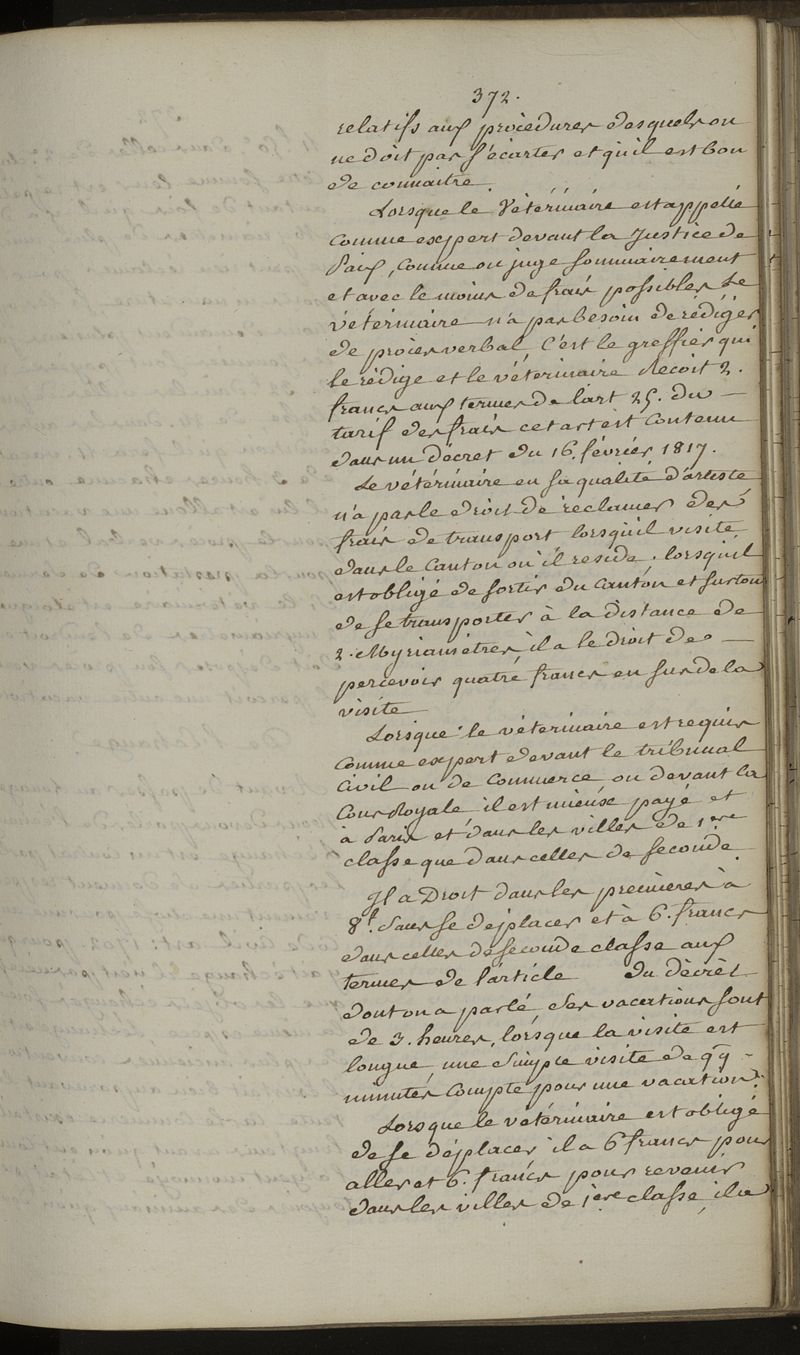 372.
relatifs aux procedures desquels on
ne doit pas s'écarter et qu'il est bon
de connaitre.
Lorsque le Vétérinaire est appellé
comme expert devant la Justice de
Paix, comme on juge sommairement
et avec le moins de frais possibles Le
vétérinaire n'a pas besoin de rédiger
de procès verbal, C'est le greffier qui
le rédige et le véterinaire Recoit 2.
francs aux termes de l'art 25. du —
tarif des frais cet art est Contenu
dans un décret du 16. février 1817.
Le vétérinaire en sa qualité d'artiste
n'a pas le droit de reclamer des
frais de transport lorsqu'il visite
dans le Canton où il reside, lorsqu'il
est obligé de sortir du Canton et surtout
de se transporter à la distance de
2. Myriamètres, il a le droit de —
percevoir quatre francs en sus de la
visite
Lorsque le véterinaire est requis
comme expert devant le tribunal
Civil ou de Commerce ou devant la
Cour Royale, il est mieux payé et
à Paris et dans les villes de 1ere
classe que dans celles de seconde.
Il a Droit dans les premieres à
8f. sans se déplacer et à 6. francs
dans celles de seconde classe aux
termes de l'article du décret
dont on a parlé des vacations sont
de 3. heures, lorsque la visite est
longue, une simple visite de qq —
minutes Compte pour une vacation.
Lorsque le vétérinaire est obligé
de se déplacer il a 6 francs pour
aller et 6. francs pour revenir
dans les villes de 1ere classe, il a